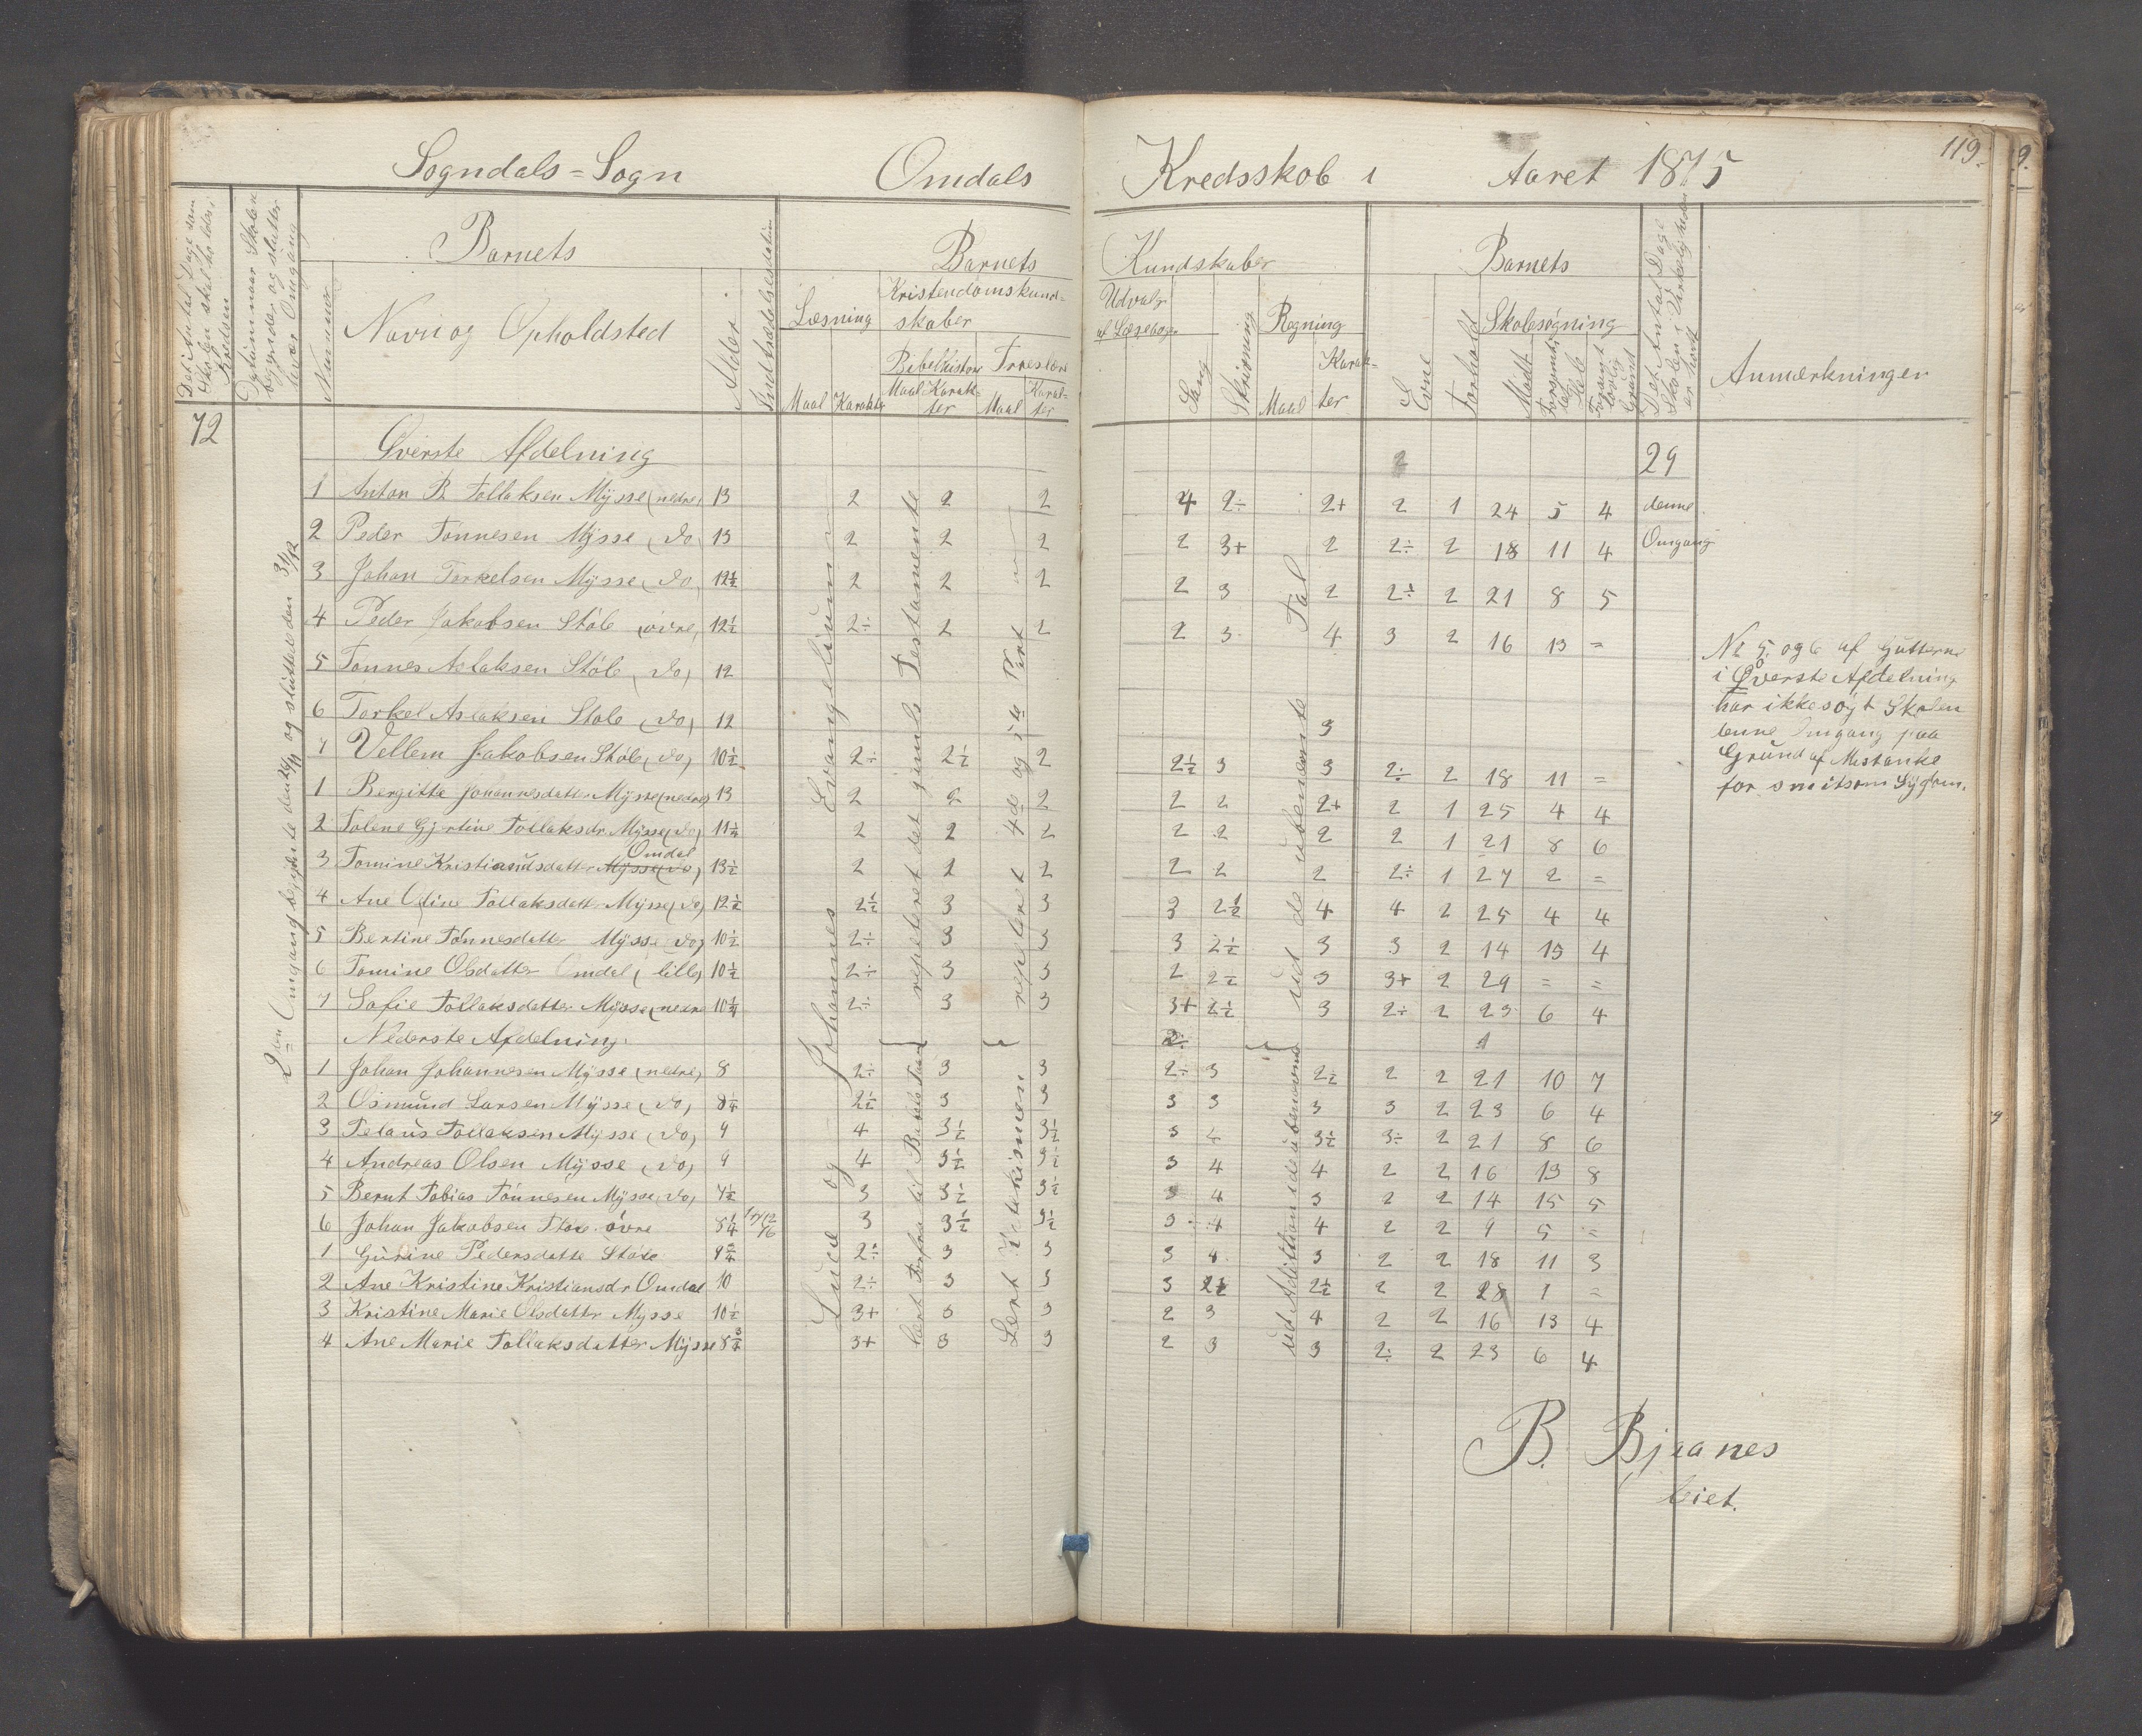 119.
Sogndals=Sogn Omdals Kredsskole i Aaret 1875
Det Antal Dage som Skolen skal holdes i Kredsen
Datum naar Skolen begynder og slutter hver Omgang
Barnets
Nummer
Navn og Opholdsted
Alder
Indtrædelsesdatum
Barnets Kundskaber
Læsning
Maal Karakter
Kristendomskundskaber
Bibelhistorie
Maal Karakter
Troeslære
Maal Karakter
Udvalg af Læsebogen
Sang
Skrivning
Regning
Maal Karakter
Barnets
Evne
Forhold
Skolesøgning
Mødt
Forsømt i det Hele
Forsømt lovlig Grund
Det Antal Dage Skolen i Virkeligheden er holdt
Anmærkninger
72
2den Omgang begyndte den 26/11 og sluttede den 31/12
Johannes Evangelium
repeteret det gamle Testamente
repeteret 4de og 5te Part
ud de ubenævnte Tal
Øverste Afdelning 2 29
1 Anton B. Tollaksen Mysse (nedre) 13 2 2 2 4 2÷ 2+ 2 1 24 5 4 denne
2 Peder Tønnesen Mysse (do) 13 2 2 2 2 3+ 2 2÷ 2 18 11 4 Omgang
3 Johan Torkelsen Mysse (do) 12½ 2 2 2 2 3 2 2÷ 2 21 8 5
4 Peder Jakobsen Støle (øvre) 12½ 2÷ 2 2 2 3 4 3 2 16 13 =
5 Tønnes Aslaksen Støle (do) 12
6 Torkel Aslaksen Støle (do) 12 3
7 Vellem Jakobsen Støle (do) 10½ 2÷ 2½ 2 2½ 3 3 2÷ 2 18 11 =
1 Bergitta Johannesdatter Mysse (nedre) 13 2 2 2 2 2 2+ 2 1 25 4 4
2 Tolene Gjertine Tollaksdr Mysse (do) 11¼ 2 2 2 2 2 2 2 1 21 8 6
3 Tomine Kristiansdatter Mysse (do) Omdal 13½ 2 2 2 2 2 2 2÷ 1 27 2 =
4 Ane Oline Tollaksdatt. Mysse (do) 12½ 2½ 3 3 3 2½ 4 4 2 25 4 4
5 Bertine Tønnesdatter Mysse (do) 10½ 2÷ 3 3 3 2½ 3 3 2 14 15 4
6 Tomine Olsdatter Omdal (lille) 10½ 2÷ 3 3 2 2½ 3 3+ 2 29 = =
7 Sofie Tollaksdatter Mysse (nedre) 10¼ 2÷ 3 3 3+ 2½ 3 2÷ 2 23 6 4
Nederste Afdelning.
1 Johan Johannesen Mysse (nedre) 8 2÷ 3 3 2÷ 3 2½ 2 2 21 10 7
2 Osmund Larsen Mysse (do) 8¼ 2½ 3 3 3 3 3 3 2 23 6 4
3 Telaus Tollaksen Mysse (do) 9 4 3½ 3½ 3 4 3½ 3÷ 2 21 8 6
4 Andreas Olsen Mysse (do) 9 4 3½ 3½ 3 4 4 2 2 16 13 8
5 Bernt Tobias Tønnesen Mysse (do) 7½ 3 3½ 3½ 3 4 3 2 2 14 15 5
6 Johan Jakobsen Støle øvre 8¼ 3 3½ 3½ 3 4 4 2 2 9 5 =
1 Gurine Pedersdatte Støle 9¾ 2÷ 3 3 3 4 3 2 2 18 11 3
2 Ane Kristine Kristiansdr Omdal 10 2÷ 3 3 3 2½ 2½ 2 2 28 1 =
3 Kristine Marie Olsdattr Mysse 10½ 3+ 3 3 2 3 4 2 2 16 13 4
4 Ane Marie Tollaksdatter Mysse 8¾ 3+ 3 3 2 3 3 2÷ 2 23 6 4
Lucæ og
Lært Katekismen
ud Adittion i de ubenævnte
No 5. og 6 af Gutterne
i Øverste Afdelning
har ikke søgt Skolen
denne Omgang paa
Grund af Mistanke
for smitsom Sygdom.
B. Bjaanes